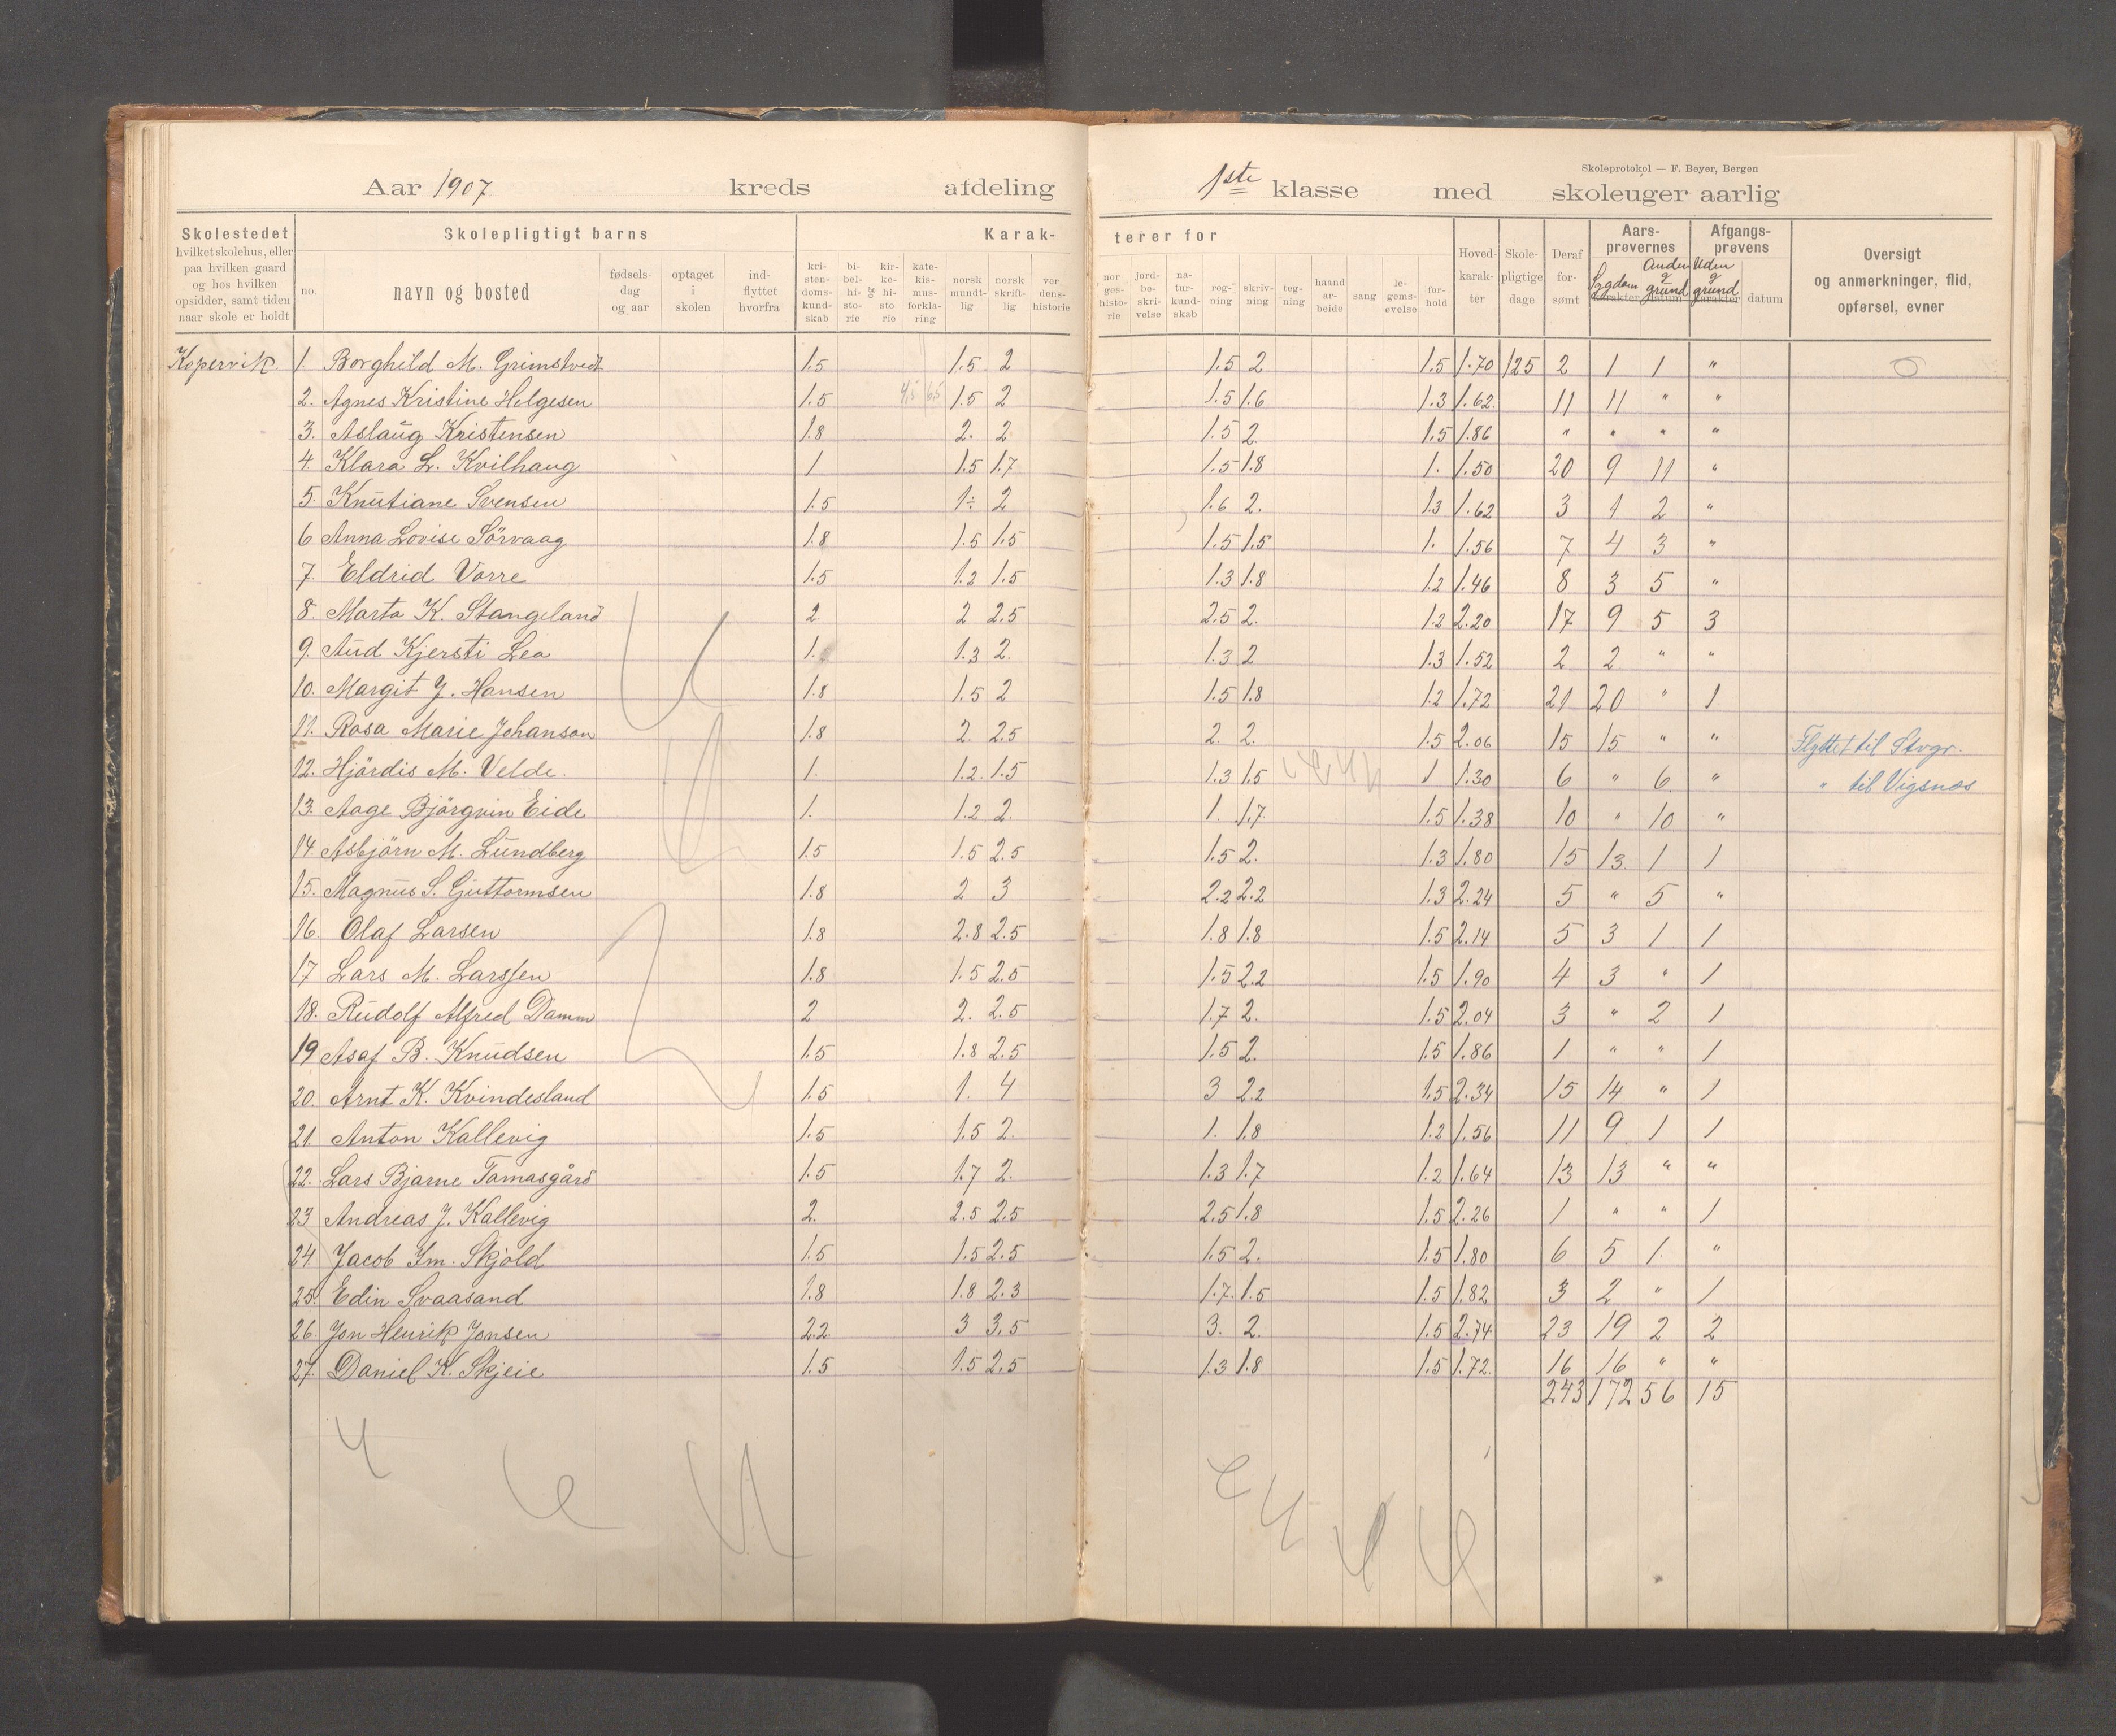 Skoleprotokol — F. Beyer, Bergen
Aar 1907 kreds afdeling 1ste klasse med skoleuger aarlig
Skolestedet
hvilket skolehus, eller
paa hvilken gaard
og hos hvilken
opsidder, samt tiden
naar skole er holdt
Skolepligtigt barns
no.
navn og bosted
fødsels-
dag
og aar
optaget
i
skolen
ind-
flyttet
hvorfra
Karak-
terer for
kri-
sten-
doms-
kund-
skab
bi-
bel-
hi-
sto-
rie
og
kir-
ke-
hi-
sto
rie
kate-
kis-
mus-
forkla-
ring
norsk
mundt-
lig
norsk
skrift-
lig
ver
dens-
historie
nor
ges-
histo-
rie
jord-
be-
skri-
velse
na-
tur-
kund-
skab
reg-
ning
skriv-
ning
teg-
ning
haand
ar-
beide
sang
le-
gems-
øvelse
for-
hold
Hoved-
karak-
ter
Skole-
pligtige
dage
Deraf
for-
sømt
Aars-
prøvernes
karakter datum
Sygdom
Anden
grund
Afgangs-
prøvens
karakter datum
Uden
grund
Oversigt
og anmerkninger, flid,
opførsel, evner
Kopervik 1. Borghild M. Grimstvedt 1.5 1.5 2 1.5 2 1.5 1.70 125 2 1 1 "
2. Agnes Kristine Helgesen 1.5 1.5 2 1.5 1.6 1.3 1.62 11 11 " "
3. Aslaug Kristensen 1.8 2. 2 1.5 2 1.5 1.86 " " " "
4. Klara L. Kvilhaug 1 1.5 1.7 1.5 1.8 1. 1.50 20 9 11 "
5. Knutiane Svensen 1.5 1÷ 2 1.6 2. 1.3 1.62 3 1 2 "
6 Anna Lovise Sörvaag 1.8 1.5 1.5 1.5 1.5 1. 1.56 7 4 3 "
7. Eldrid Vorre 1.5 1.2 1.5 1.3 1.8 1.2 1.46 8 3 5 "
8. Marta K. Stangeland 2 2 2.5 2.5 2. 1.2 2.20 17 9 5 3
9. Aud Kjersti Lea 1. 1.3 2. 1.3 2 1.3 1.52 2 2 " "
10. Margit J. Hansen 1.8 1.5 2 1.5 1.8 1.2 1.72 21 20 " 1
11. Rosa Marie Johanson 1.8 2. 2.5 2. 2. 1.5 2.06 15 15 " " Flyttet til Stvgr.
12. Hjördis M. Velde. 1. 1.2. 1.5 1.3 1.5 1 1.30 6 " 6 " " til Vigsnæs
13. Aage Björgvin Eide 1. 1.2 2. 1. 1.7 1.5 1.38 10 " 10 "
14. Asbjörn M. Lundberg 1.5 1.5 2.5 1.5 2. 1.3 1.80 15 13 1 1
15. Magnus S. Guttormsen 1.8 2 3 2.2 2.2 1.3 2.24 5 " 5 "
16. Olaf Larsen 1.8 2.8 2.5 1.8 1.8 1.5 2.14 5 3 1 1
17 Lars M. Larssen 1.8 1.5 2.5 1.5 2.2 1.5 1.90 4 3 " 1
18. Rudolf Alfred Damm 2 2. 2.5 1.7 2. 1.5 2.04 3 " 2 1
19 Asaf B. Knudsen 1.5 1.8 2.5 1.5 2. 1.5 1.86 1 " " 1
20. Arnt K. Kvindesland 1.5 1. 4 3 2.2 1.5 2.34 15 14 " 1
21. Anton Kallevig 1.5 1.5 2. 1. 1.8 1.2 1.56 11 9 1 1
22. Lars Bjarne Tamasgård 1.5 1.7 2. 1.3 1.7 1.2 1.64 13 13 " "
23 Andreas J. Kallevig 2. 2.5 2.5 2.5 1.8 1.5 2.26 1 " " 1
24. Jacob Im. Skjold 1.5 1.5 2.5 1.5 2. 1.5 1.80 6 5 1. "
25. Edin Svaasand 1.8 1.8 2.3 1.7. 1.5 1.5 1.82 3 2 " 1
26. Jon Henrik Jonsen 2.2. 3 3.5 3. 2. 1.5 2.74 23 19 2 2
27. Daniel K. Skjeie 1.5 1.5 2.5 1.3 1.8 1.5 1.72. 16 16 " "
243 172 56 15